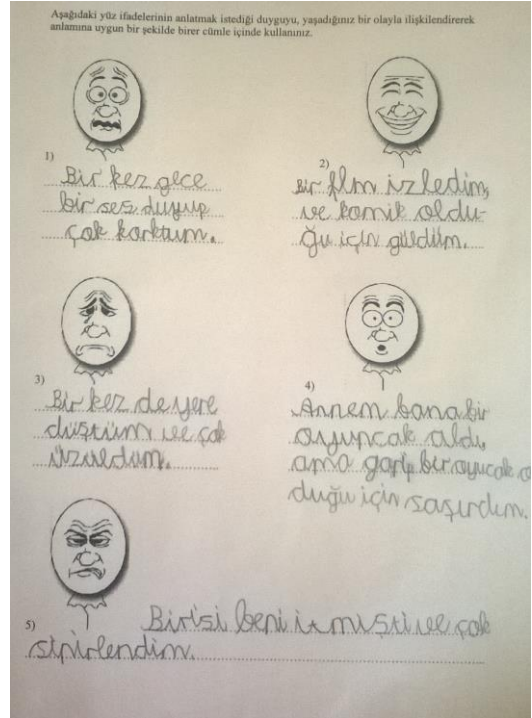 Aşağıdaki yüz ifadelerinin anlatmak istediği duyguyu, yaşadığınız bir olayla ilişkilendirerek
anlamına uygun bir şekilde birer cümle içinde kullanınız.
1)
Bir kez gece
bir ses duyup
çok korktum.
2)
Bir film izledim,
ve komik oldu-
ğu için güldüm.
3)
Bir kez de yere
düştüm ve çok
üzüldüm.
4)
Annem bana bir
oyuncak aldı,
ama garip bir oyucak o
duğu için saşırdım.
5) Birisi beni itmişti ve çok
sinirlendim.